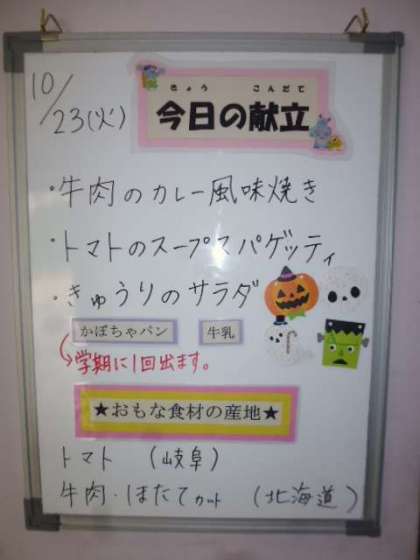 10/23(火)
きょう こんだて
今日の献立
・牛肉のカレー風味焼き
・トマトのスープスパゲッティ
・きゅうりのサラダ
かぼちゃパン 牛乳
学期に1回出ます。
★おもな食材の産地★
トマト (岐阜)
牛肉・ほたてカット (北海道)